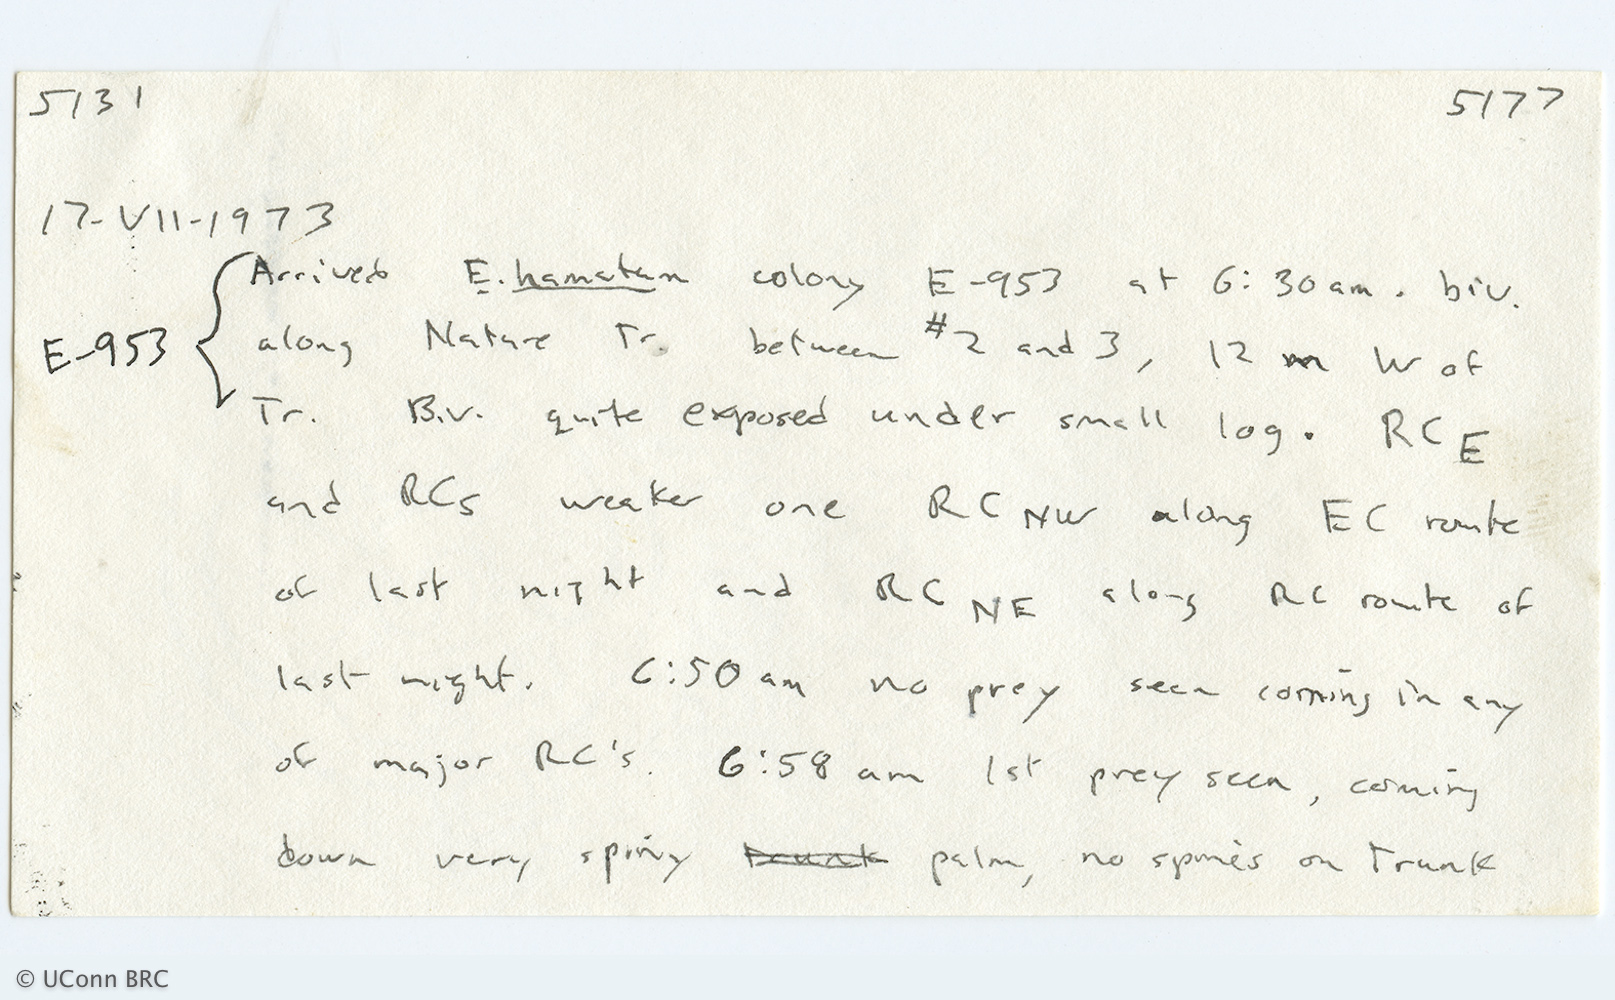 5131 5177
17-VII-1973
Arrived E. hamatum colony E-953 at 6:30 am. biv.
E-953 along Nature Tr. between #2 and 3, 12 m W of
Tr. Biv. quite exposed under small log. RC E
and RCs weaker one RC NW along EC route
of last night and RC NE along RC route of
last night. 6:50 am no prey seen coming in any
of major RC's. 6:58 am 1st prey seen, coming
down very spiny trunk palm, no spines on Trunk
© UConn BRC